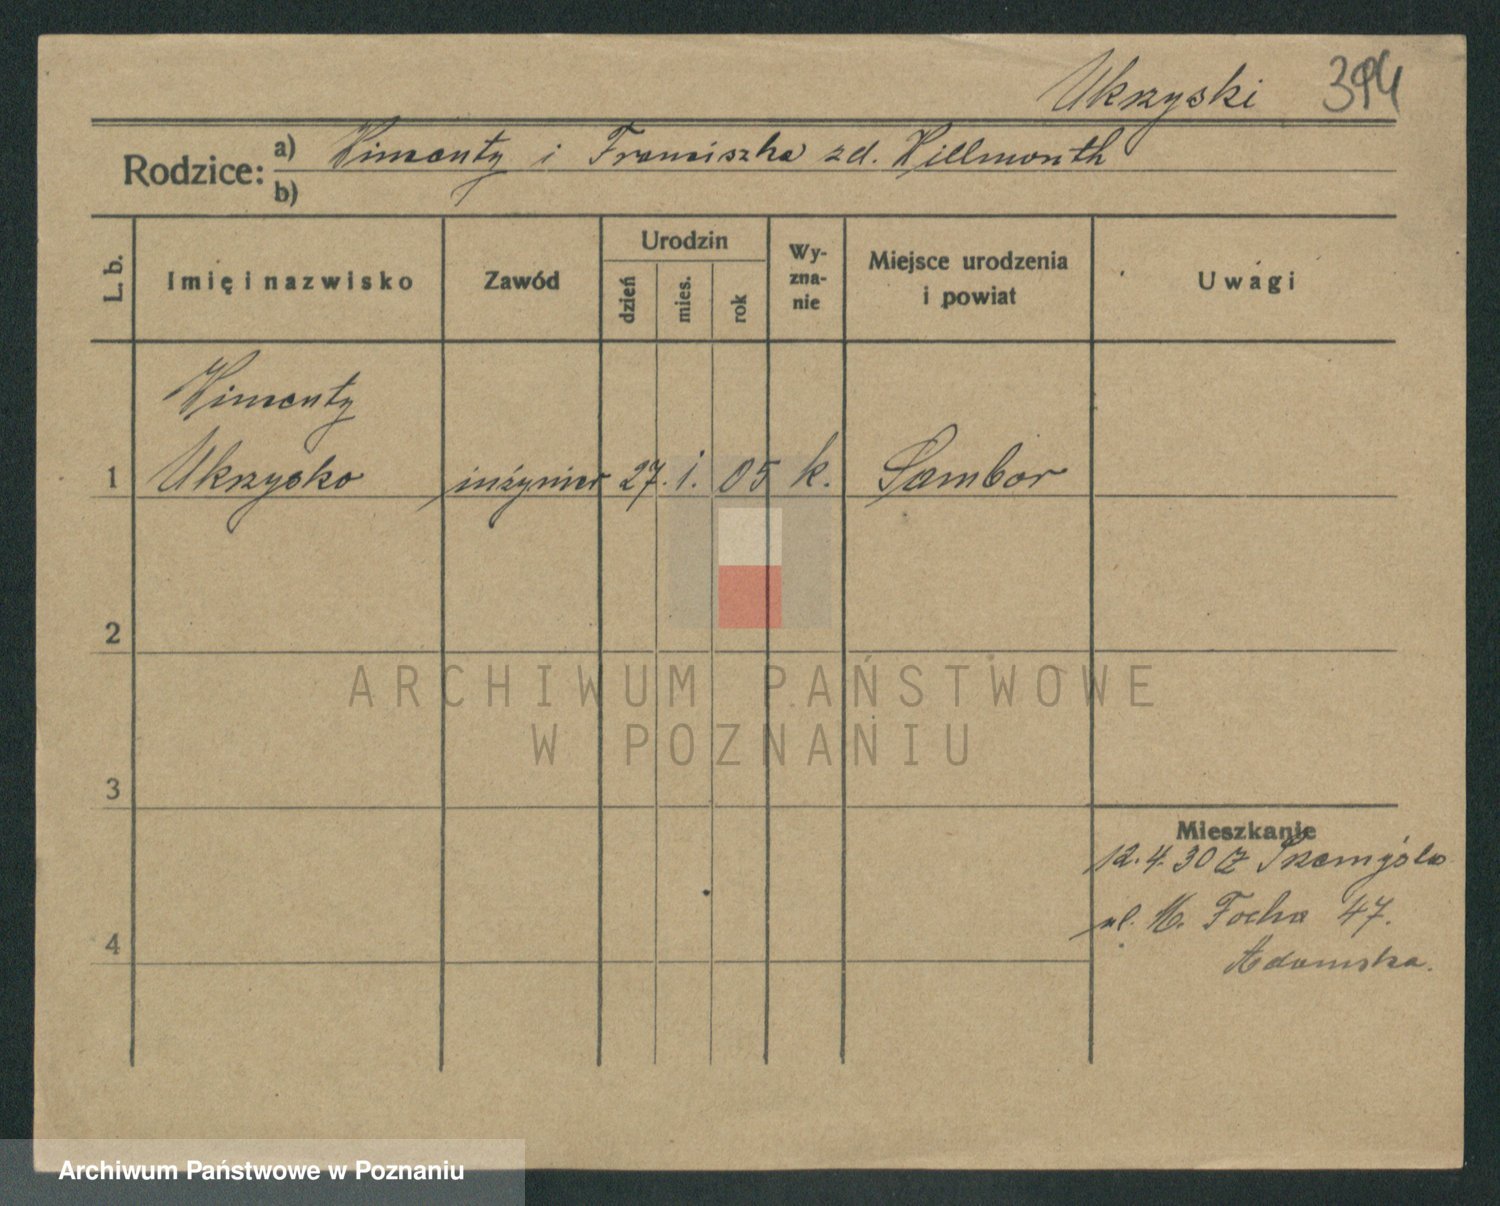 Ukrzyski 394
Rodzice: a) Wincenty i Franciszka zd. Hillmonth
b)
L. b.
Imię i nazwisko
Zawód
Urodzin
dzień
mies.
rok
Wy-
zna-
nie
Miejsce urodzenia
i powiat
Uwagi
Wincenty
1 Ukrzysko inżynier 27. i. 05 k. Sambor
2
3
4
Mieszkanie
12.4.30 z Przemyśla
ul. M. Focha 47.
Adamska.
ARCHIWUM PAŃSTWOWE
W POZNANIU
Archiwum Państwowe w Poznaniu